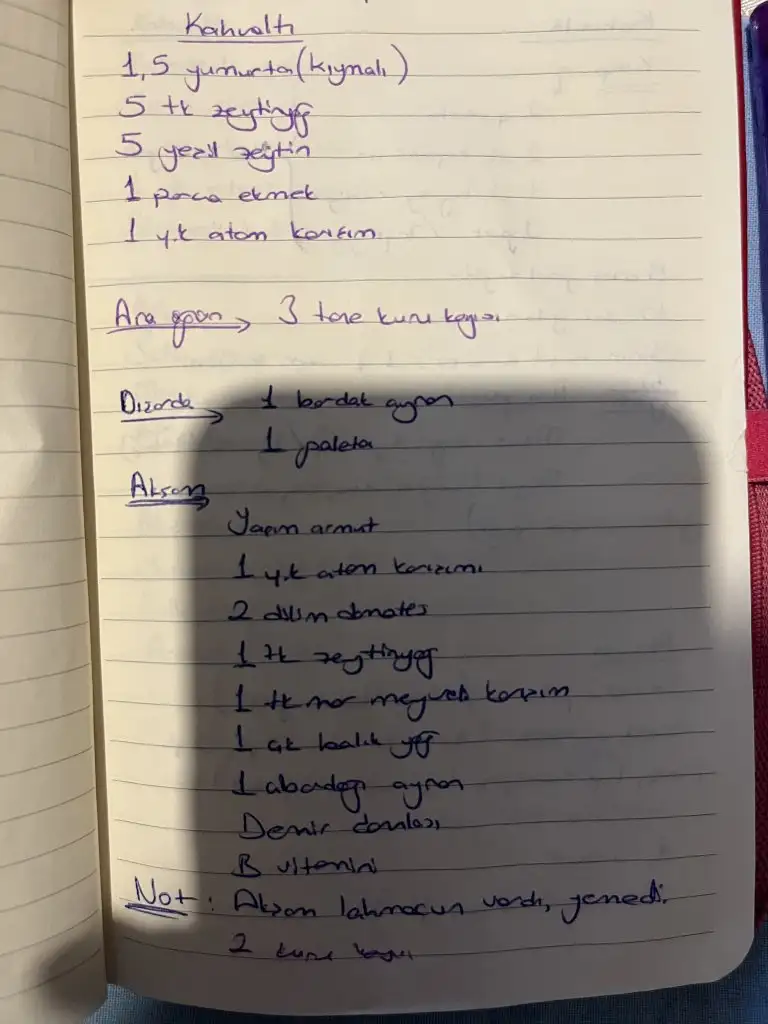 Kahvaltı
1,5 yumurta (kıymalı)
5 tk zeytinyağ
5 yeşil zeytin
1 parça ekmek
1 y.k atom karışım
Ara öğün → 3 tane kuru kayısı
Dışarda → 1 bardak ayran
1 paleta
Akşam →
Yarım armut
1 y.k atom karışımı
2 dilim domates
1 tk zeytinyağ
1 tk mor meyveli karışım
1 çk balık yağ
1 ayran
Demir damlası
B vitamini
Not : Akşam lahmacun vardı, yemedi.
2 kuru kayısı